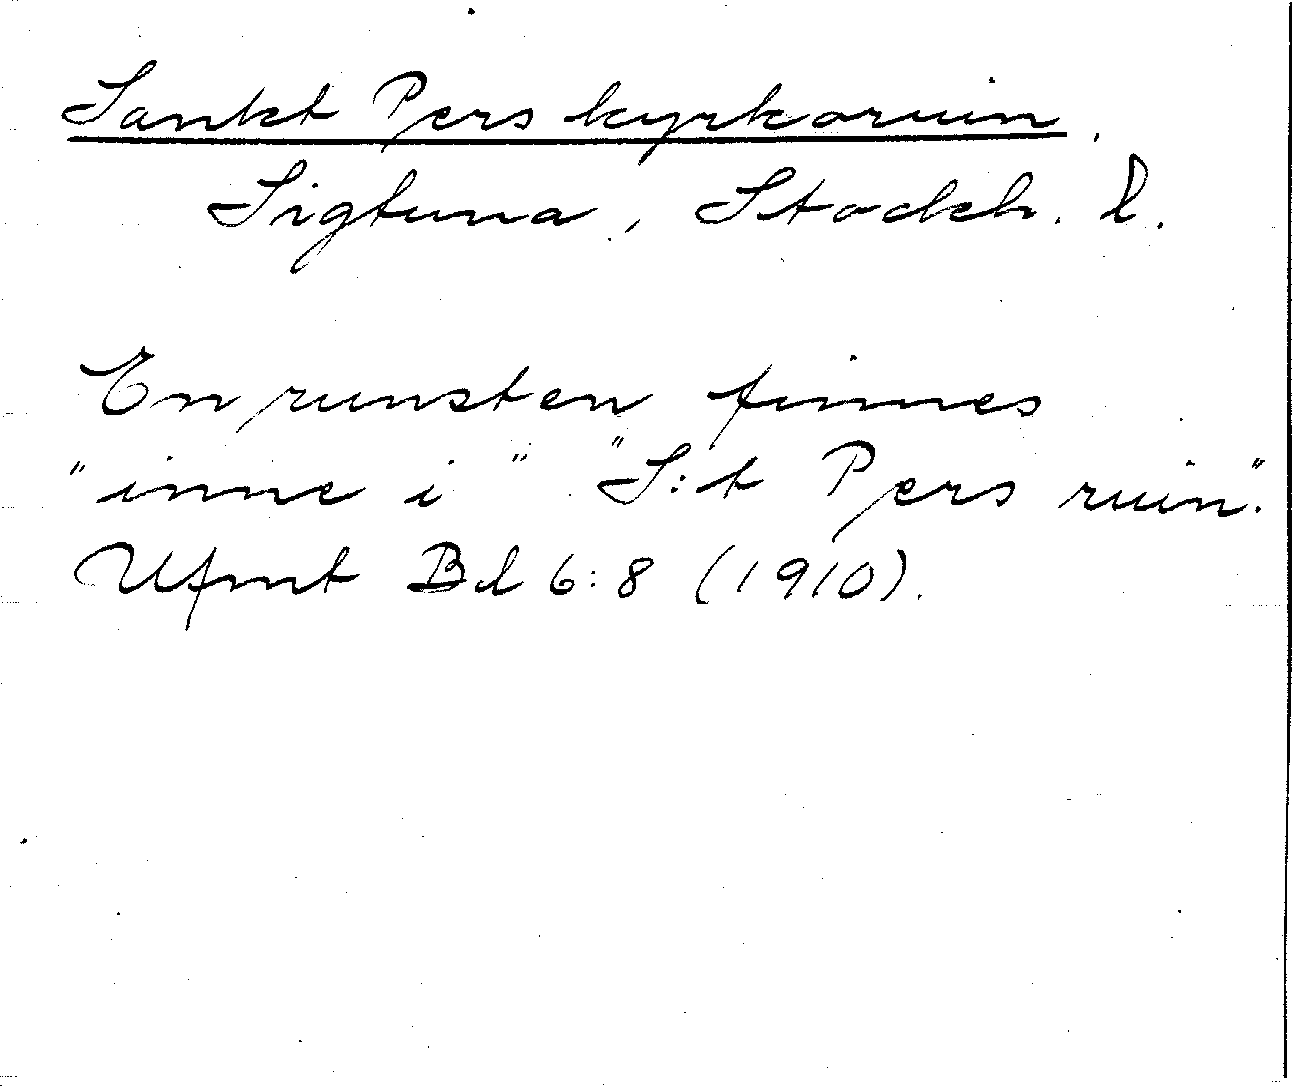 Sankt Pers kyrkoruin.
Sigtuna, Stockh. l.
En runsten finnes
"inne i" "S:t Pers ruin".
Ufmt Bd 6:8 (1910).